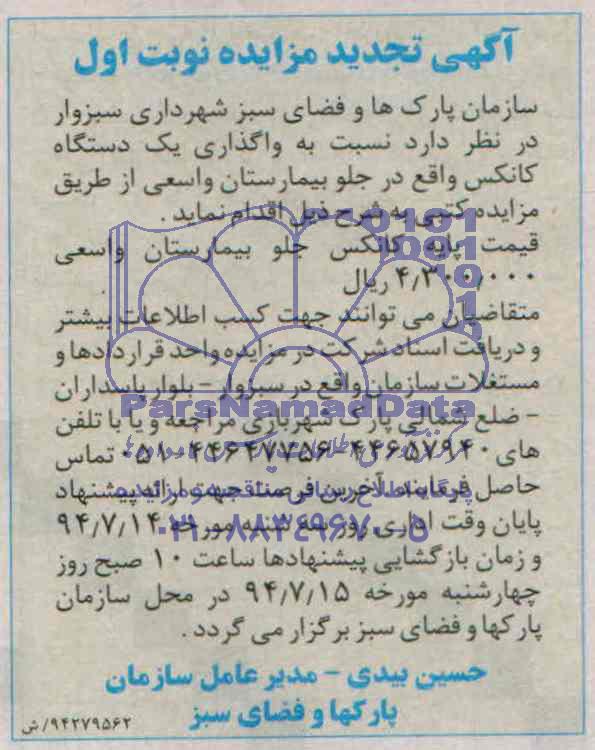 آگهی تجدید مزایده نوبت اول
سازمان پارک ها و فضای سبز شهرداری سبزوار
در نظر دارد نسبت به واگذاری یک دستگاه
کانکس واقع در جلو بیمارستان واسعی از طریق
مزایده کتبی به شرح ذیل اقدام نماید.
قیمت پایه کانکس جلو بیمارستان واسعی
۴٫۳۰۰٫۰۰۰ ریال
متقاضیان می توانند جهت کسب اطلاعات بیشتر
و دریافت اسناد شرکت در مزایده واحد قراردادها و
مستغلات سازمان واقع در سبزوار - بلوار پاسداران
ParsNamadData
- ضلع شمالی پارک شهربازی مراجعه و یا با تلفن
های ۴۴۶۵۷۹۴۰-۴۴۶۴۷۷۵۶-۰۵۱ تماس
حاصل فرمایند. آخرین فرصت جهت ارائه پیشنهاد
پایان وقت اداری روز سه شنبه مورخ ۹۴/۷/۱۴
۰۲۱-۸۸۳۴۹۶۷۰-۵
و زمان بازگشایی پیشنهادها ساعت ۱۰ صبح روز
چهارشنبه مورخه ۹۴/۷/۱۵ در محل سازمان
پارکها و فضای سبز برگزار می گردد.
حسین بیدی - مدیر عامل سازمان
پارکها و فضای سبز
۹۴۲۷۹۵۶۲/ش